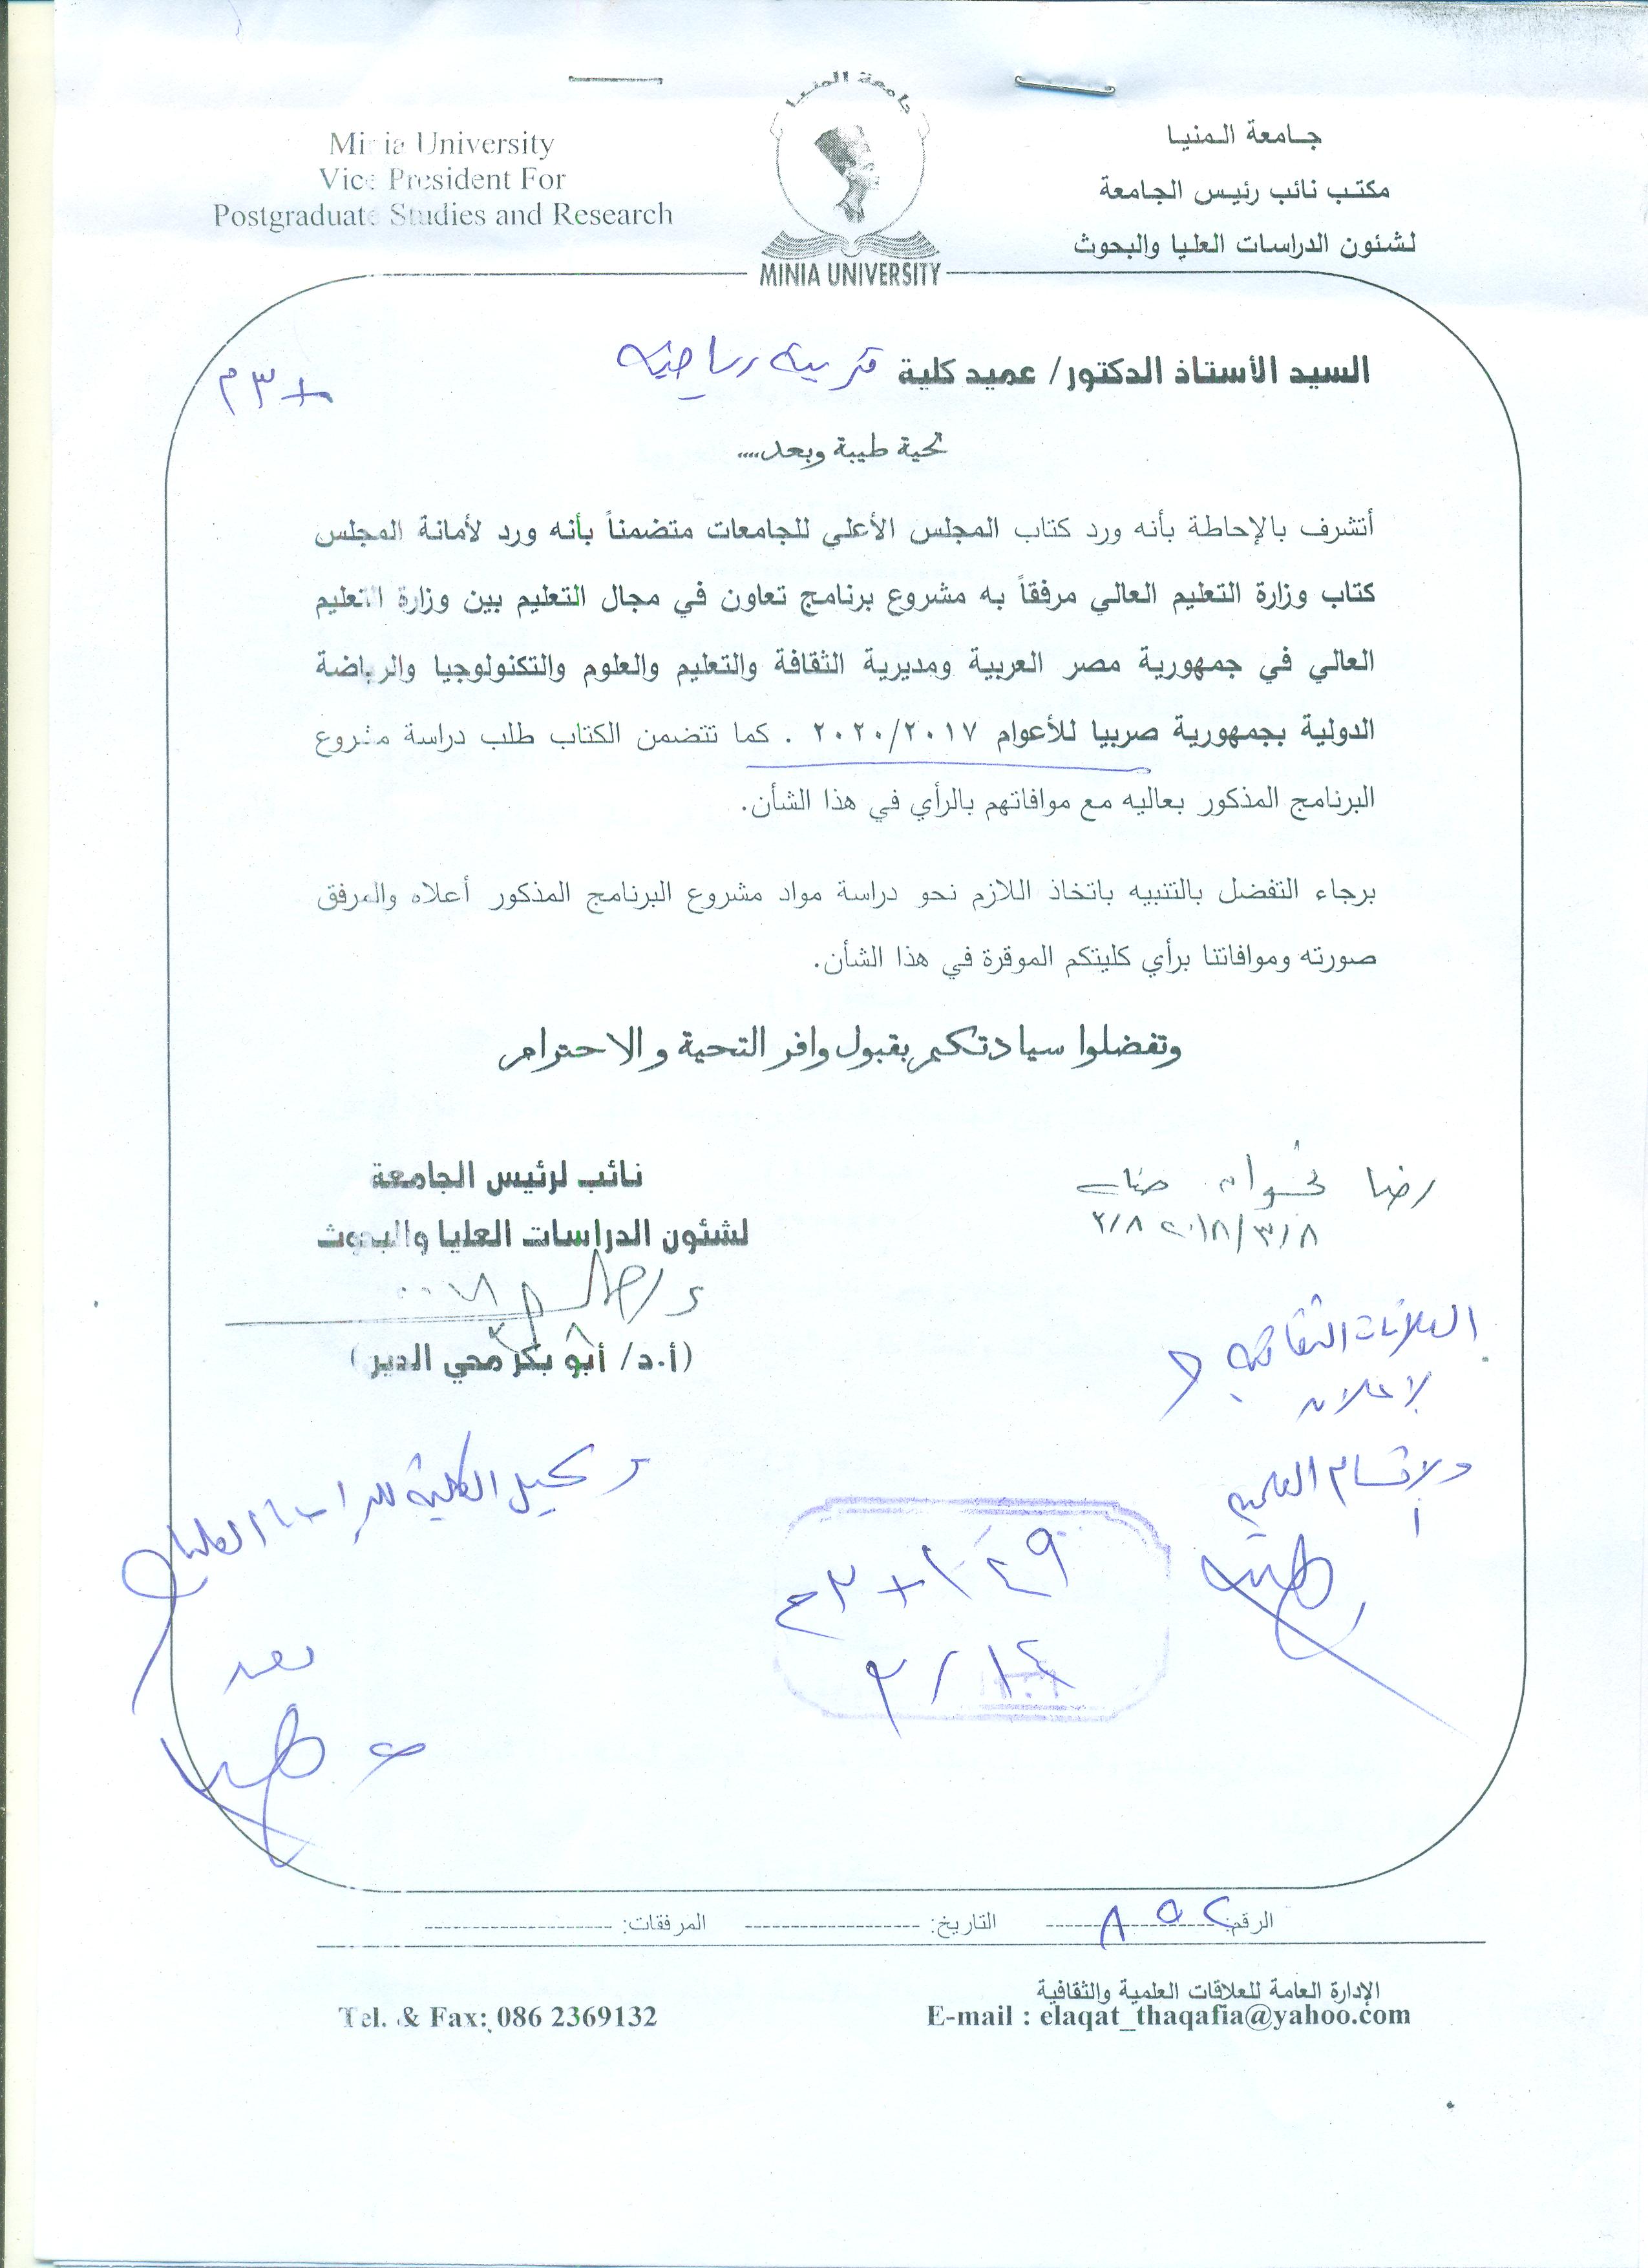 Minia University
Vice President For
Postgraduate Studies and Research
جامعة المنيا
MINIA UNIVERSITY
جامعة المنيا
مكتب نائب رئيس الجامعة
لشئون الدراسات العليا والبحوث
السيد الأستاذ الدكتور/ عميد كلية تربية رياضية
+٣م
تحية طيبة وبعد....
أتشرف بالإحاطة بأنه ورد كتاب المجلس الأعلي للجامعات متضمناً بأنه ورد لأمانة المجلس
كتاب وزارة التعليم العالي مرفقاً به مشروع برنامج تعاون في مجال التعليم بين وزارة التعليم
العالي في جمهورية مصر العربية ومديرية الثقافة والتعليم والعلوم والتكنولوجيا والرياضة
الدولية بجمهورية صربيا للأعوام ٢٠٢٠/٢٠١٧ . كما تتضمن الكتاب طلب دراسة مشروع
البرنامج المذكور بعاليه مع موافاتهم بالرأي في هذا الشأن.
برجاء التفضل بالتنبيه باتخاذ اللازم نحو دراسة مواد مشروع البرنامج المذكور أعلاه والمرفق
صورته وموافاتنا برأي كليتكم الموقرة في هذا الشأن.
وتفضلوا سيادتكم بقبول وافر التحية والاحترام
نائب لرئيس الجامعة
لشئون الدراسات العليا والبحوث
(أ.د/ أبو بكر محي الدين)
رضا
٢٠١٨/٣/٨ ٣/٨
العلاقات الثقافية
لإعلان
والأقسام العلمية
وكيل الكلية للدراسات العليا
٣/١٤
الرقم: ٨٥٢ التاريخ: المرفقات:
الإدارة العامة للعلاقات العلمية والثقافية
Tel. & Fax: 086 2369132
E-mail : elaqat_thaqafia@yahoo.com